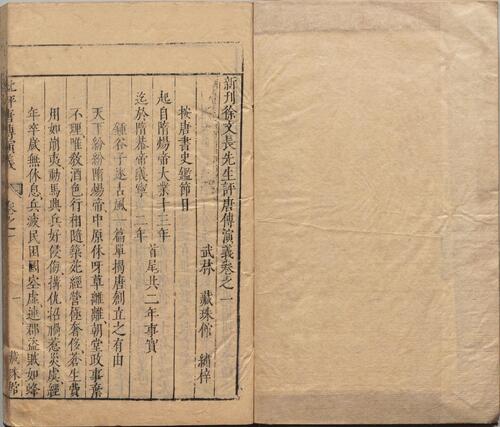 新刊徐文長先生評唐傳演義卷之一
武林 藏珠館 繡梓
按唐書史鑑節目
起自隋煬帝大業十三年
迄於隋恭帝義寧二年
首尾共二年事實
鍾谷子述古風一篇單揭唐創立之有由
天下紛紛隋煬帝中原休呀草離離朝堂政事棄
不理唯敎酒色行相隨築死經營極奢侈蒼生費
用如崩夷動馬興兵好侵伐搆仇招禍惹災虞經
年卒歲無休息兵疲民困國空虛連郡盜賊如蜂
批評唐傳演義
卷之一
一
藏珠館